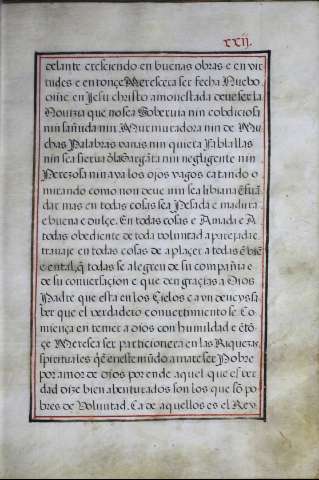 xxij.
delante cresciendo en buenas obras e en vir
tudes e entonçe Meresçera ser fecha Nuebo
ome en Jesu christo amonestada deue ser la
Nouiza que no sea Soberuia nin cobdiciosa
nin sañuda nin Murmuradora nin de Mu
chas Palabras vanas nin quieta Pablallas
nin sea sierua dla Garganta nin negligente nin
Peresosa nin ava los ojos vagos catando o
mirando como non deue nin sea libiana en su ā
dar mas en todas cosas sea Pesada e madura
e buena e dulçe. En todas cosas e Amada e A
todas obediente de toda voluntad aparejada e
trauaje en todas cosas de aplaçer a todas en biē
e en tal, q̄ todas se alegren de su compañia e
de su conuersacion e que den graçias a Dios
Padre que esta en los Cielos e avn deue vs sa
ber que el verdadero conuertimiento se Co
miença en temer a dios con humildad e ētō
çe Meresçe ser particionera en las Riquezas
spirituales q̄ en este mūdo amare ser Pobre
por amor de dios por ende aquel que es ver
dad dize bien abenturados son los que sō po
bres de Voluntad. Ca de aquellos es el Rey